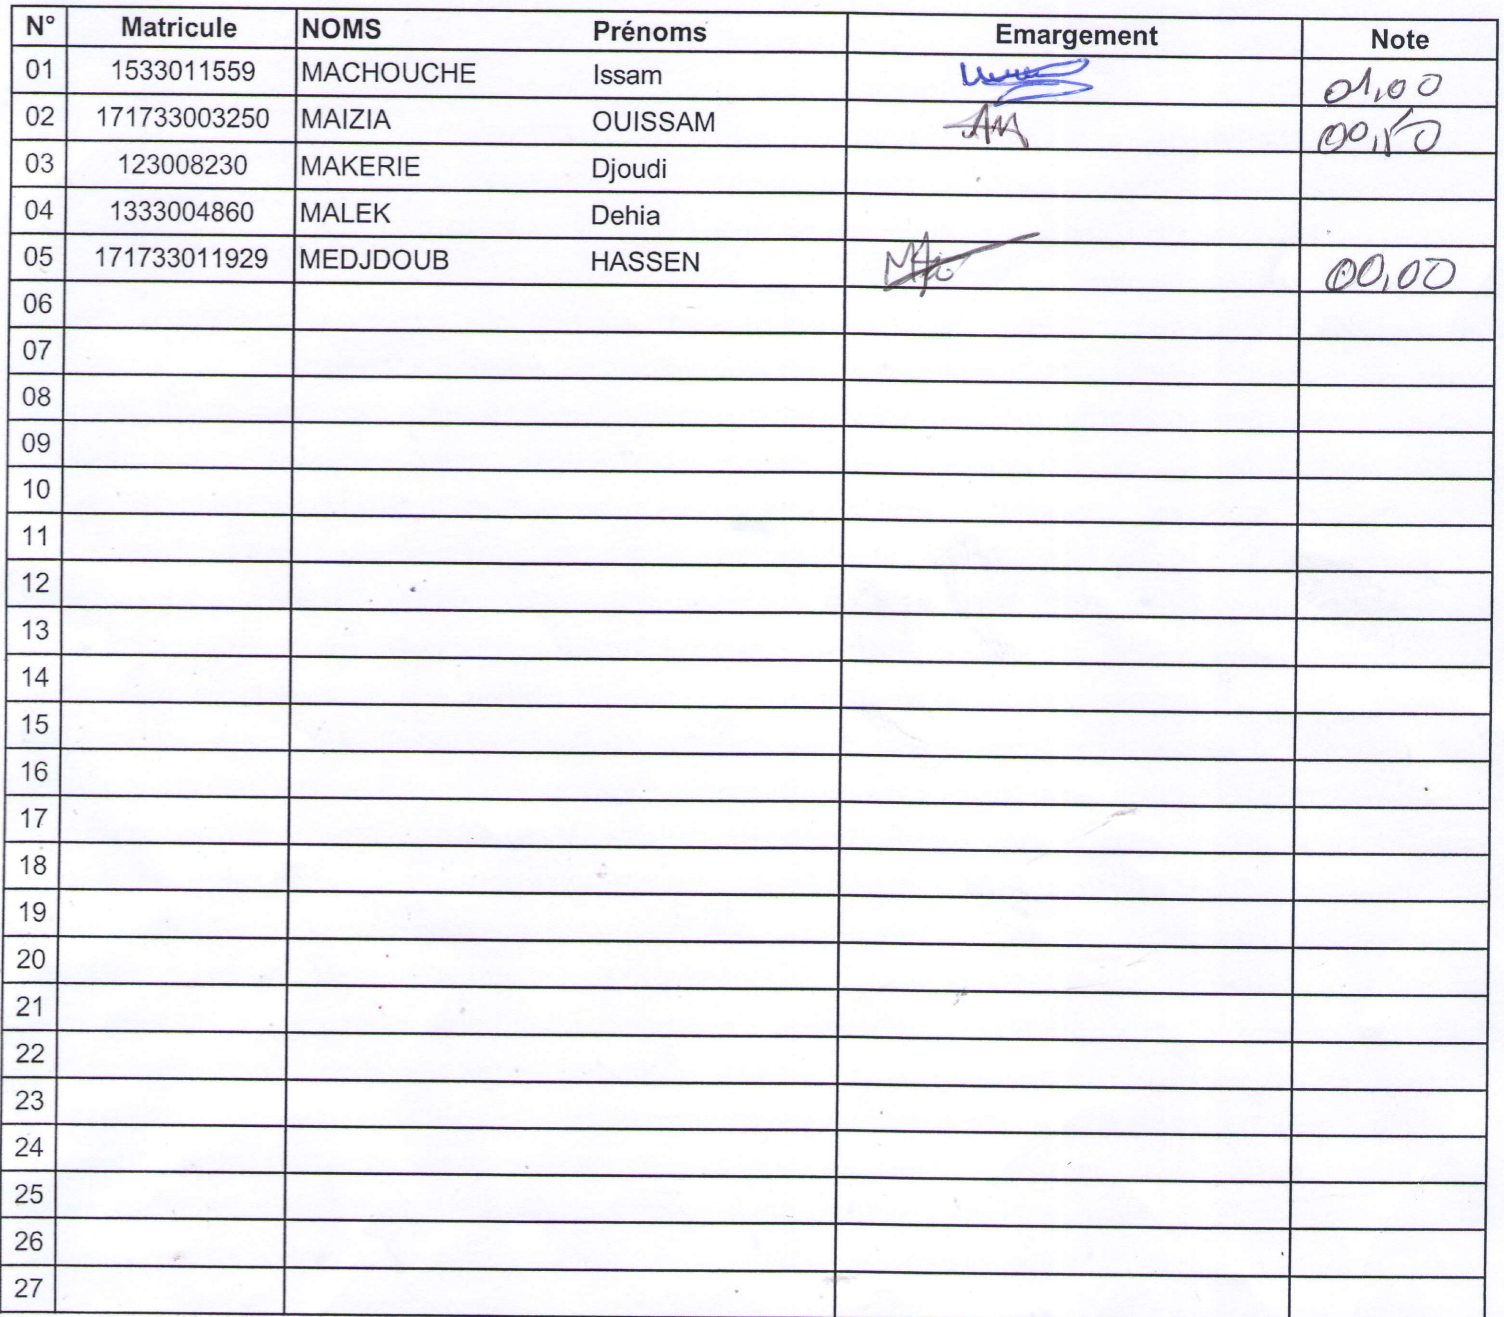 N° Matricule NOMS Prénoms Emargement Note
01 1533011559 MACHOUCHE Issam 01,00
02 171733003250 MAIZIA OUISSAM 00,50
03 123008230 MAKERIE Djoudi
04 1333004860 MALEK Dehia
05 171733011929 MEDJDOUB HASSEN 00,00
06
07
08
09
10
11
12
13
14
15
16
17
18
19
20
21
22
23
24
25
26
27